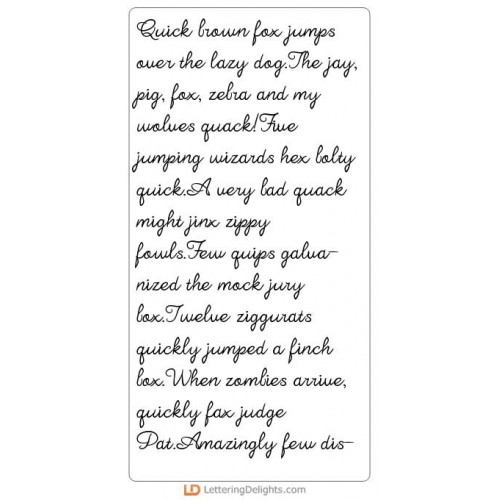 Quick brown fox jumps
over the lazy dog.The jay,
pig, fox, zebra and my
wolves quack!Five
jumping wizards hex bolty
quick.A very bad quack
might jinx zippy
fowls.Few quips galva-
nized the mock jury
box.Twelve ziggurats
quickly jumped a finch
box.When zombies arrive,
quickly fax judge
Pat.Amazingly few dis-
LD LetteringDelights.com